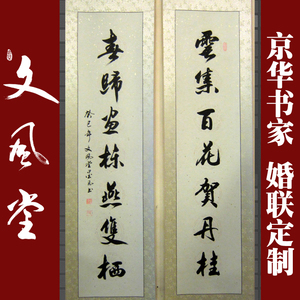 文风堂
雲集百花賀丹桂
春歸画栋燕雙栖
癸巳年文風堂
京华书家 婚联定制